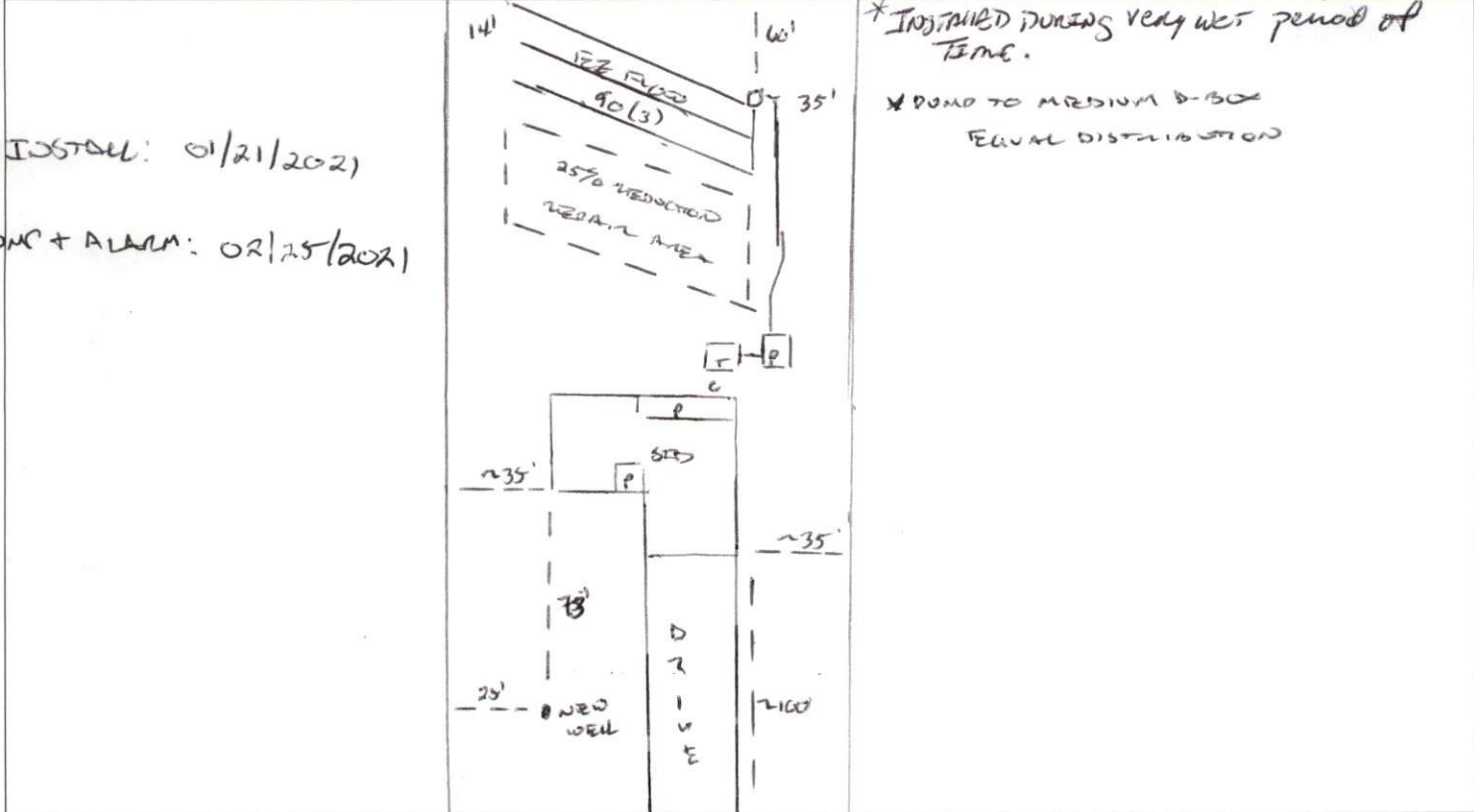 INSTALL: 01/21/2021
+ ALARM: 02/25/2021
14'
60'
35'
EZ FLOW
90 (3)
25% REDUCTION
REPAIR AREA
T
P
C
P
SFD
P
~35'
~35'
DRIVE
~100'
NEW
WELL
* INSTALLED DURING very wet period of
TIME.
* PUMP TO MEDIUM D-BOX
EQUAL DISTRIBUTION